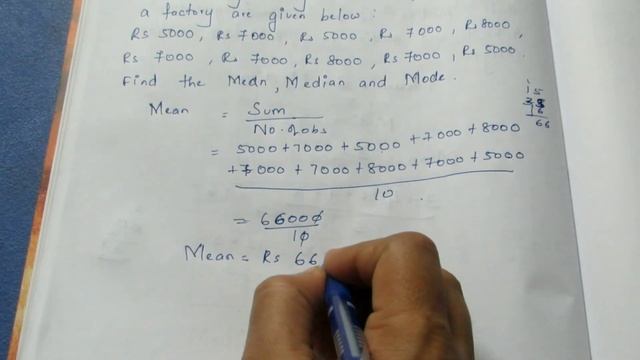 a factory are given below:
Rs 5000, Rs 7000, Rs 5000, Rs 7000, Rs 8000,
Rs 7000, Rs 7000, Rs 8000, Rs 7000, Rs 5000.
Find the Mean, Median and Mode.
Mean = Sum
No. of obs
= 5000+7000+5000+7000+8000
+7000+7000+8000+7000+5000
10
= 66000
10
Mean = Rs 66
66